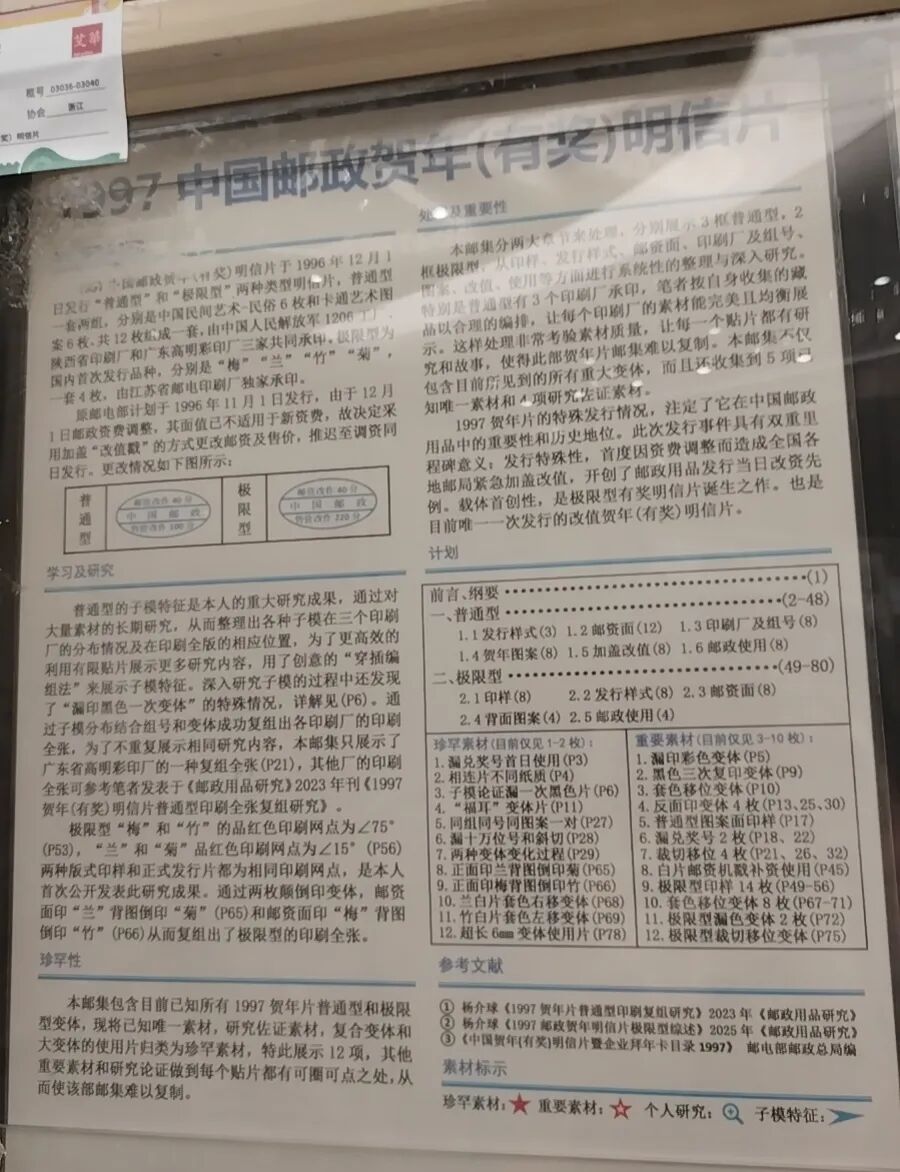 框号 03036-03040
协会 浙江
奖）明信片
1997 中国邮政贺年(有奖)明信片
明信片于 1996 年 12 月 1
日发行“普通型”和“极限型”两种类型明信片，普通型
一套两组，分别是中国民间艺术-民俗 6 枚和卡通艺术图
案 6 枚、共 12 枚组成一套，由中国人民解放军 1206 工厂、
陕西省印刷厂和广东高明彩印厂三家共同承印。极限型为
国内首次发行品种，分别是“梅”“兰”“竹”“菊”，
一套 4 枚，由江苏省邮电印刷厂独家承印。
原邮电部计划于 1996 年 11 月 1 日发行，由于 12 月
1 日邮政资费调整，其面值已不适用于新资费，故决定采
用加盖“改值戳”的方式更改邮资及售价，推迟至调资同
日发行。更改情况如下图所示：
普通型
邮资改作 40 分
中国邮政
售价改作 100 分
极限型
邮资改作 40 分
中国邮政
售价改作 220 分
学习及研究
普通型的子模特征是本人的重大研究成果，通过对
大量素材的长期研究，从而整理出各种子模在三个印刷
厂的分布情况及在印刷全版的相应位置，为了更高效的
利用有限贴片展示更多研究内容，用了创意的“穿插编
组法”来展示子模特征。深入研究子模的过程中还发现
了“漏印黑色一次变体”的特殊情况，详解见(P6)。通
过子模分布结合组号和变体成功复组出各印刷厂的印刷
全张，为了不重复展示相同研究内容，本邮集只展示了
广东省高明彩印厂的一种复组全张(P21)，其他厂的印刷
全张可参考笔者发表于《邮政用品研究》2023 年刊《1997
贺年(有奖)明信片普通型印刷全张复组研究》。
极限型“梅”和“竹”的品红色印刷网点为∠75°
(P53)，“兰”和“菊”品红色印刷网点为∠15° (P56)
两种版式印样和正式发行片都为相同印刷网点，是本人
首次公开发表此研究成果。通过两枚颠倒印变体，邮资
面印“兰”背图倒印“菊”(P65)和邮资面印“梅”背图
倒印“竹”(P66)从而复组出了极限型的印刷全张。
珍罕性
本邮集包含目前已知所有 1997 贺年片普通型和极限
型变体，现将已知唯一素材，研究佐证素材，复合变体和
大变体的使用片归类为珍罕素材，特此展示 12 项，其他
重要素材和研究论证做到每个贴片都有可圈可点之处，从
而使该部邮集难以复制。
处理及重要性
本邮集分两大章节来处理，分别展示 3 框普通型，2
框极限型，从印样、发行样式、邮资面、印刷厂及组号、
图案、改值、使用等方面进行系统性的整理与深入研究。
特别是普通型有 3 个印刷厂承印，笔者按自身收集的藏
品以合理的编排，让每个印刷厂的素材能完美且均衡展
示。这样处理非常考验素材质量，让每一个贴片都有研
究和故事，使得此部贺年片邮集难以复制。本邮集不仅
包含目前所见到的所有重大变体，而且还收集到 5 项已
知唯一素材和 4 项研究佐证素材。
1997 贺年片的特殊发行情况，注定了它在中国邮政
用品中的重要性和历史地位。此次发行事件具有双重里
程碑意义：发行特殊性，首度因资费调整而造成全国各
地邮局紧急加盖改值，开创了邮政用品发行当日改资先
例。载体首创性，是极限型有奖明信片诞生之作。也是
目前唯一一次发行的改值贺年(有奖)明信片。
计划
前言、纲要 (1)
一、普通型 (2-48)
1.1 发行样式(3) 1.2 邮资面(12) 1.3 印刷厂及组号(8)
1.4 贺年图案(8) 1.5 加盖改值(8) 1.6 邮政使用(8)
二、极限型 (49-80)
2.1 印样(8) 2.2 发行样式(8) 2.3 邮资面(8)
2.4 背面图案(4) 2.5 邮政使用(4)
珍罕素材(目前仅见 1-2 枚)：
1. 漏兑奖号首日使用(P3)
2. 相连片不同纸质(P4)
3. 子模论证漏一次黑色片(P6)
4. “福耳”变体片(P11)
5. 同组同号同图案一对(P27)
6. 漏十万位号和斜切(P28)
7. 两种变体变化过程(P29)
8. 正面印兰背图倒印菊(P65)
9. 正面印梅背图倒印竹(P66)
10. 兰白片套色右移变体(P68)
11. 竹白片套色左移变体(P69)
12. 超长 6mm 变体使用片(P78)
重要素材(目前仅见 3-10 枚)：
1. 漏印彩色变体(P5)
2. 黑色三次复印变体(P9)
3. 套色移位变体(P10)
4. 反面印变体 4 枚(P13、25、30)
5. 普通型图案面印样(P17)
6. 漏兑奖号 2 枚(P18、22)
7. 裁切移位 4 枚(P21、26、32)
8. 白片邮资机戳补资使用(P45)
9. 极限型印样 14 枚(P49-56)
10. 套色移位变体 8 枚(P67-71)
11. 极限型漏色变体 2 枚(P72)
12. 极限型裁切移位变体(P75)
参考文献
① 杨介球《1997 贺年片普通型印刷复组研究》2023 年《邮政用品研究》
② 杨介球《1997 邮政贺年明信片极限型综述》2025 年《邮政用品研究》
③ 《中国贺年(有奖)明信片暨企业拜年卡目录 1997》 邮电部邮政总局编
素材标示
珍罕素材： 重要素材： 个人研究： 子模特征：